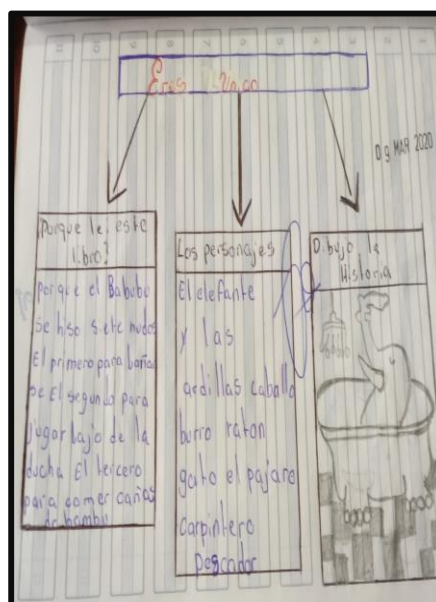 Eres Unico
09 MAR 2020
Porque lei este
libro?
porque el Babubo
se hiso siete nudos
El primero para baña
se El segundo para
jugar bajo de la
ducha El tercero
para comer cañas
de bambu
Los personajes
El elefante
y las
ardillas caballo
burro raton
gato el pajaro
carpintero
pescador
Dibujo la
Historia